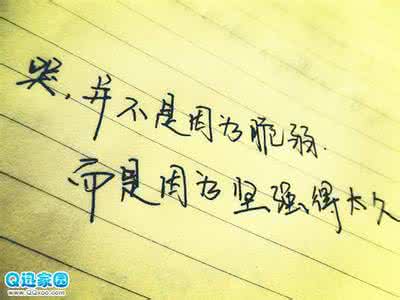 哭，并不是因为脆弱.
而是因为坚强得太久
Q迅家园
www.QQxoo.com